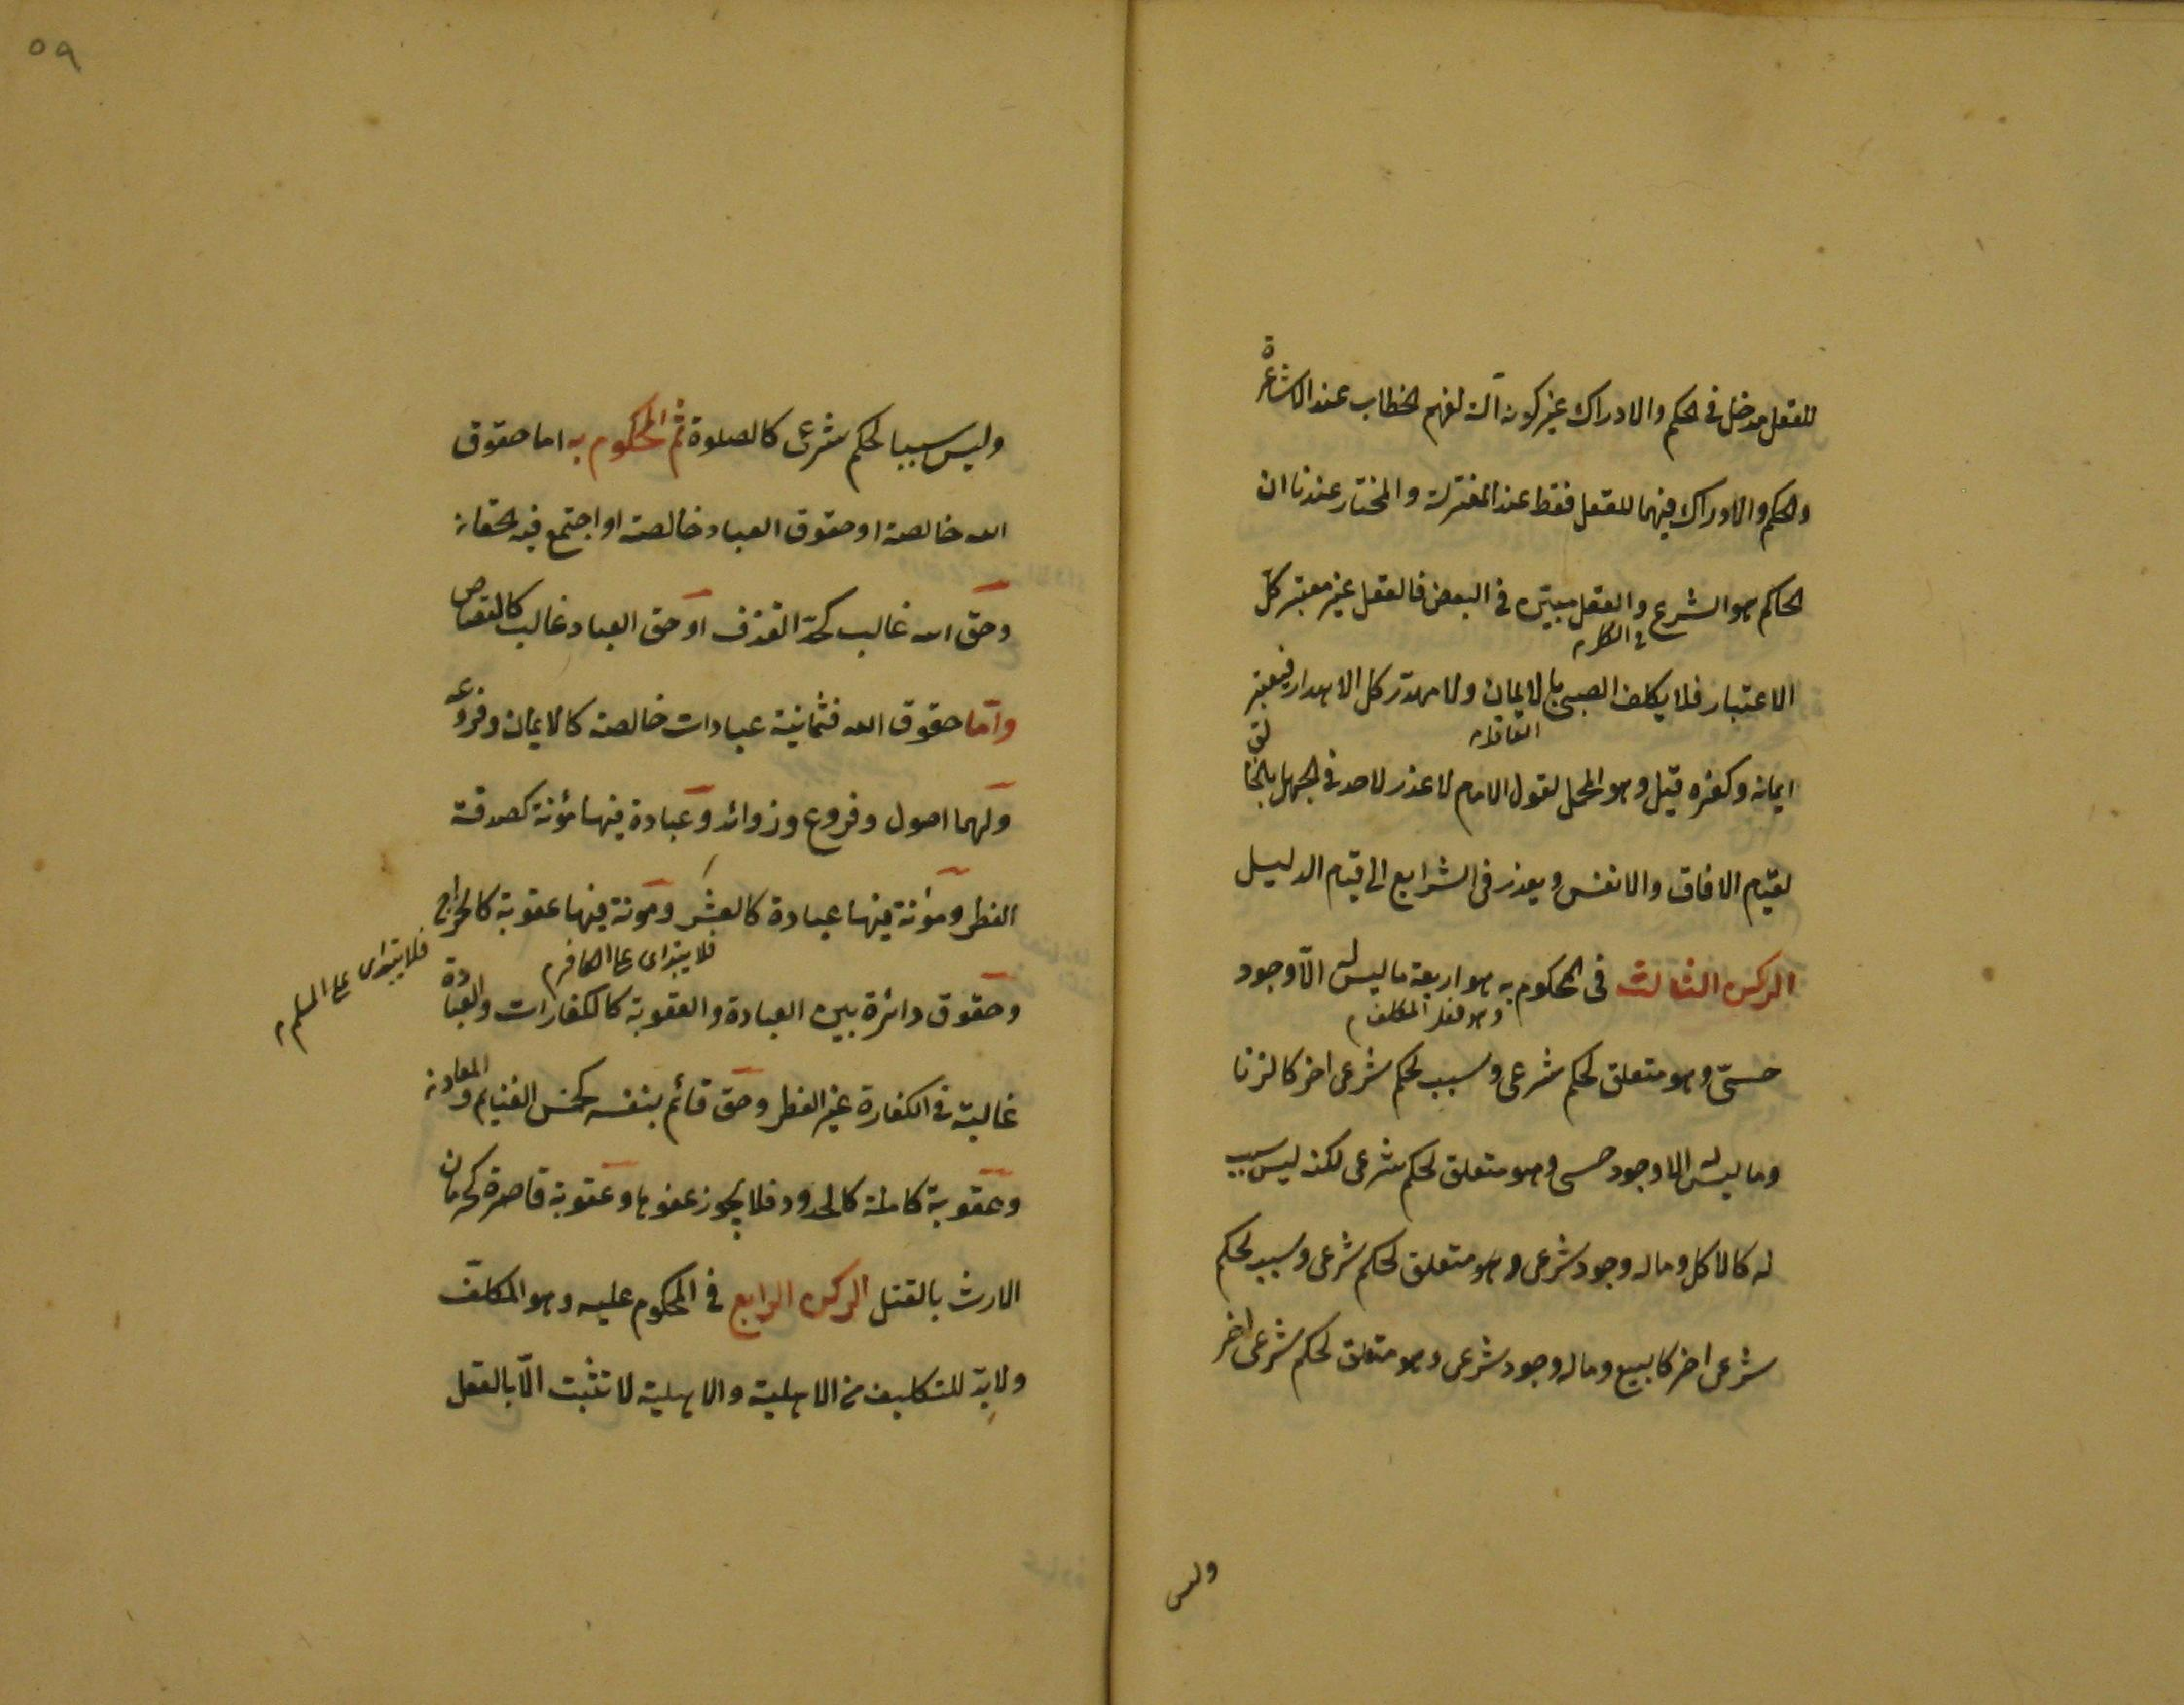 للعقل مدخل في الحكم والادراك غير كونه آلة لفهم الخطاب عند الاشاعرة
والحكم والادراك فيهما للعقل فقط عند المعتزلة والمختار عندنا ان
الحاكم هو الشرع والعقل مبينه في البعض فالعقل غير معتبر كل
في الكل م
الاعتبار فلا يكلف الصبي بالايمان ولا مهدّر كل الاهدار فيعتبر
العاقل م
ايمانه وكفره قيل وهو المحمل لقول الامام لا عذر لاحد في الجهل بالخالق
لقيام الافاق والانفس ويعذر في الشرايع الى قيام الدليل
الركن الثالث في المحكوم به هو اربعة ما ليس له الاّ وجود
وهو فعل المكلف م
حسىّ وهو متعلق لحكم شرعى وسبب لحكم شرعى اخر كالزنا
وما ليس له الا وجود حسى وهو متعلق لحكم شرعى لكنه ليس سبب
له كالاكل وما له وجود شرعى وهو متعلق لحكم شرعى وسبب لحكم
شرعى اخر كالبيع وما له وجود شرعى وهو متعلق لحكم شرعى اخر
وليس
٥٩
وليس سببا لحكم شرعى كالصلوة ثم المحكوم به اما حقوق
الله خالصة او حقوق العباد خالصة او اجتمع فيه الحقان
وحق الله غالب كحدّ القذف او حق العباد غالب كالقصاص
وامّا حقوق الله فثمانية عبادات خالصة كالايمان وفروعه
ولهما اصول وفروع وزوائد وعبادة فيها مؤنة كصدقة
الفطر ومؤنة فيها عبادة كالعشر ومؤنة فيها عقوبة كالخراج
فلا يبتدى على الكافر م
فلا يبتدى على المسلم م
وحقوق دائرة بين العبادة والعقوبة كالكفارات والعبادة
غالبة في الكفارة غير الفطر وحق قائم بنفسه كخمس الغنايم والمعادن
وعقوبة كاملة كالحدود فلا يجوز عفوها وعقوبة قاصرة كحرمان
الارث بالقتل الركن الرابع في المحكوم عليه وهو المكلّف
ولا بدّ للتكليف من الاهلية والاهلية لا تثبت الاّ بالعقل